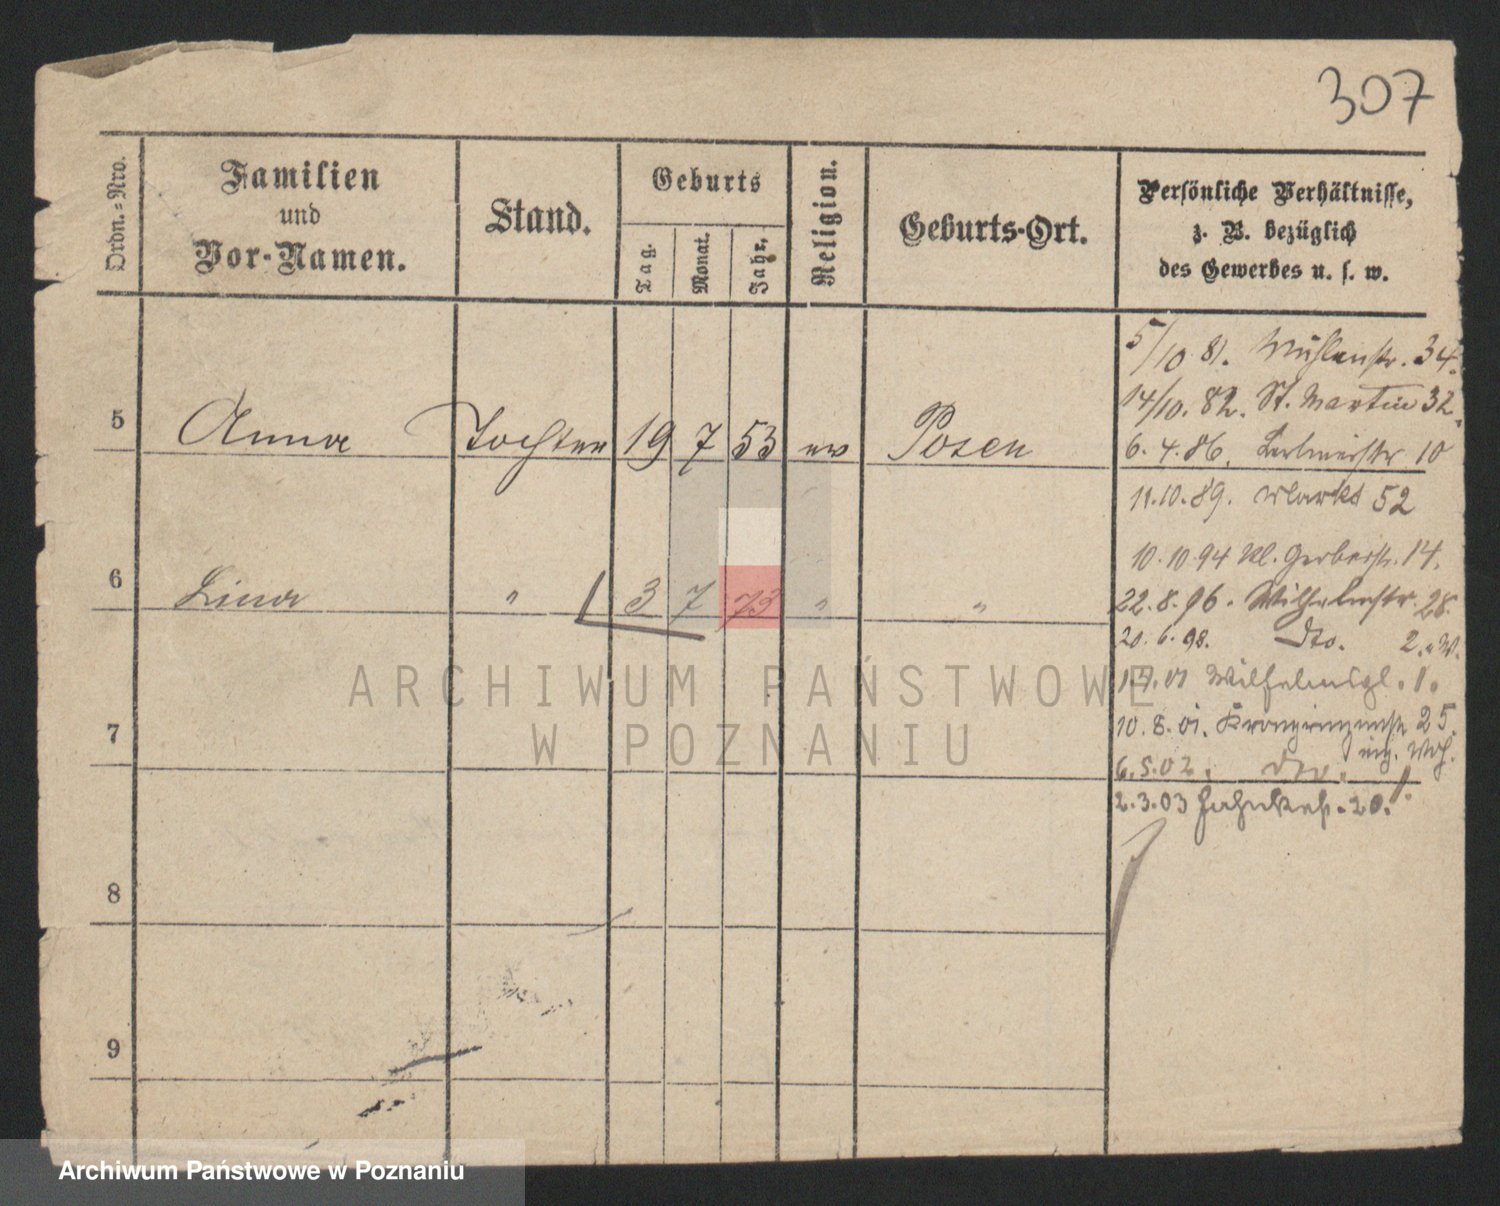 307
Ordn.-Nro.
Familien
und
Vor-Namen.
Stand.
Geburts
Tag.
Monat.
Jahr.
Religion.
Geburts-Ort.
Persönliche Verhältnisse,
z. B. bezüglich
des Gewerbes u. s. w.
5/10 81. Mühlenstr. 34.
14/10. 82. St. Martin 32.
5 Anna Tochter 19 7 53 ev Posen
6. 4. 86. 10
11.10.89. Markt 52
10.10.94 Kl. Gerberstr. 14.
6 Lina " 3 7 73 " "
22.8.96. Wilhelmstr. 28.
20.6.98. Dto. 2. W.
Wilhelmspl. 1.
10.8.01. Kronprinzenstr 25.
7
6.5.02. Dto. 1.
2.3.03 20.
8
9
ARCHIWUM PAŃSTWOWE
W POZNANIU
Archiwum Państwowe w Poznaniu